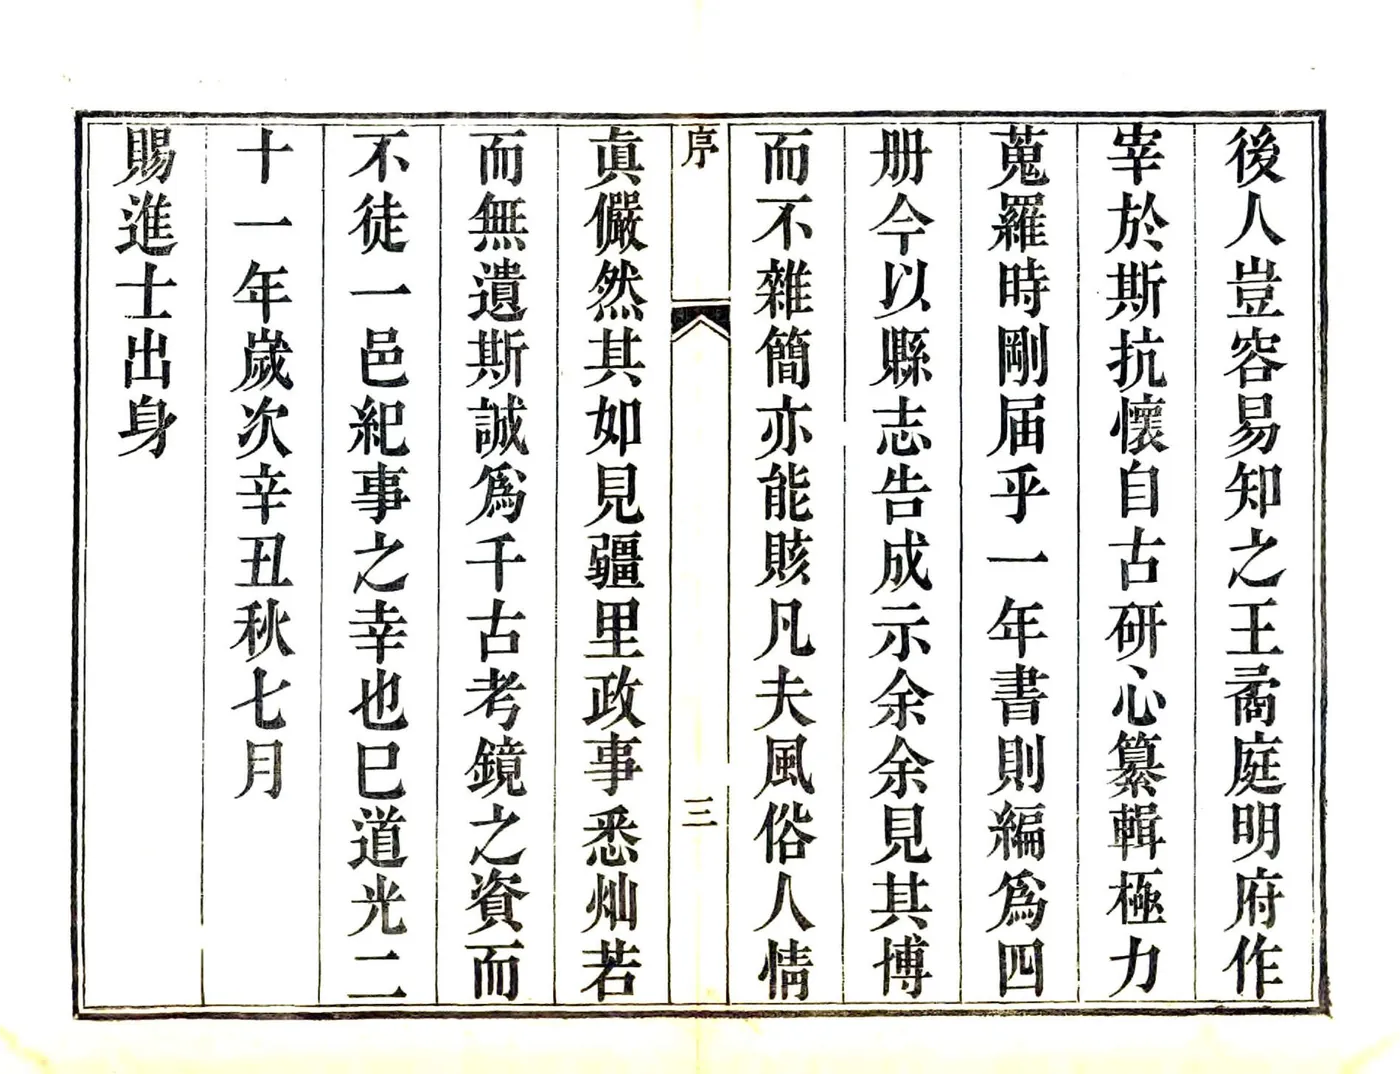 後人豈容易知之王矞庭明府作
宰於斯抗懷自古研心纂輯極力
蒐羅時剛届乎一年書則編爲四
册今以縣志告成示余余見其博
而不雜簡亦能賅凡夫風俗人情
序
三
眞儼然其如見疆里政事悉灿若
而無遺斯誠爲千古考鏡之資而
不徒一邑紀事之幸也巳道光二
十一年歲次辛丑秋七月
賜進士出身